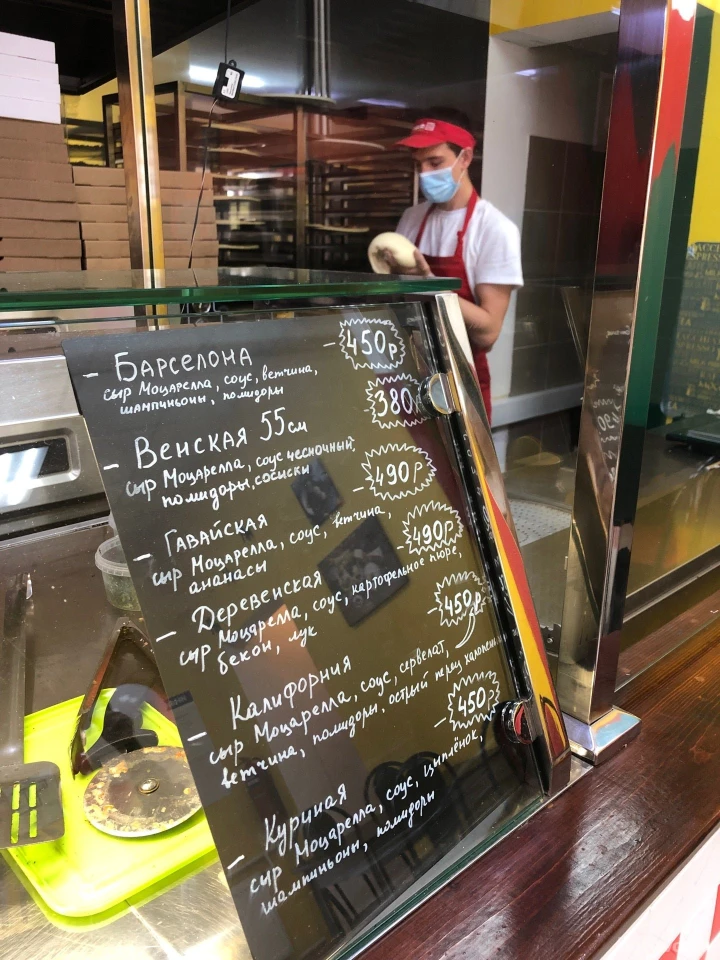 - БАРСЕЛОНА - 450р
сыр Моцарелла, соус, ветчина,
шампиньоны, помидоры
- ВЕНСКАЯ 55см - 380
сыр Моцарелла, соус чесночный,
помидоры, сосиски
- ГАВАЙСКАЯ - 490р
сыр Моцарелла, соус, ветчина,
ананасы
- ДЕРЕВЕНСКАЯ - 490р
сыр Моцарелла, соус, картофельное пюре,
бекон, лук
- КАЛИФОРНИЯ - 450р
сыр Моцарелла, соус, сервелат,
ветчина, помидоры, острый перец
- КУРИНАЯ - 450р
сыр Моцарелла, соус, цыплёнок,
шампиньоны, помидоры